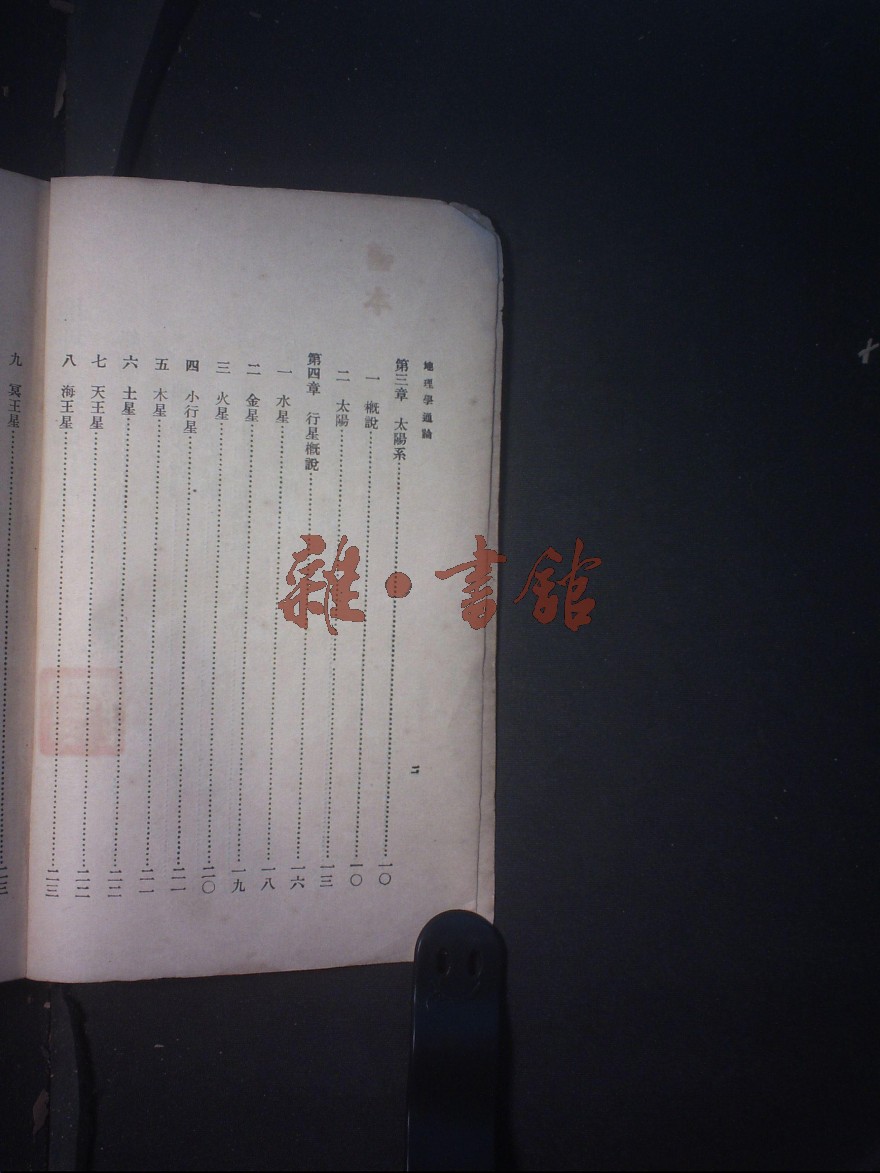 地理學通論
第三章　太陽系……一〇
一　概說……一〇
二　太陽……一三
第四章　行星概說……一六
一　水星……一八
二　金星……一九
三　火星……二〇
四　小行星……二一
五　木星……二一
六　土星……二二
七　天王星……二二
八　海王星……二三
九　冥王星……二三
二
本
雜・書館